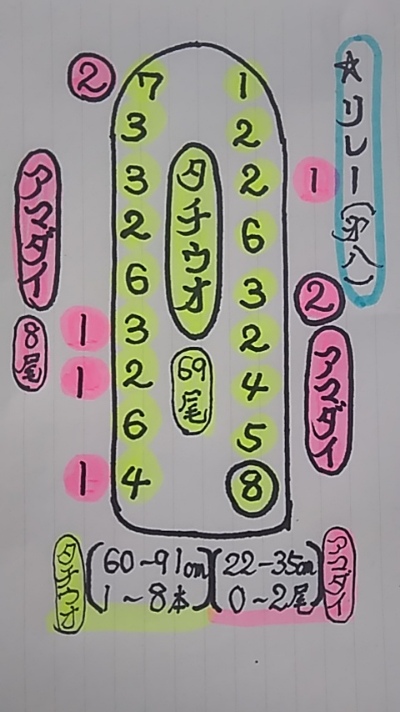 ☆リレー(才八)
② 7 1
3 2
3 2 1
2 6
6 3 ②
1 3 2
1 2 4
6 5
1 4 ⑧
タチウオ
69尾
アマダイ
8尾
アマダイ
タチウオ (60~91cm) (22-35cm) アマダイ
(1~8本) (0~2尾)